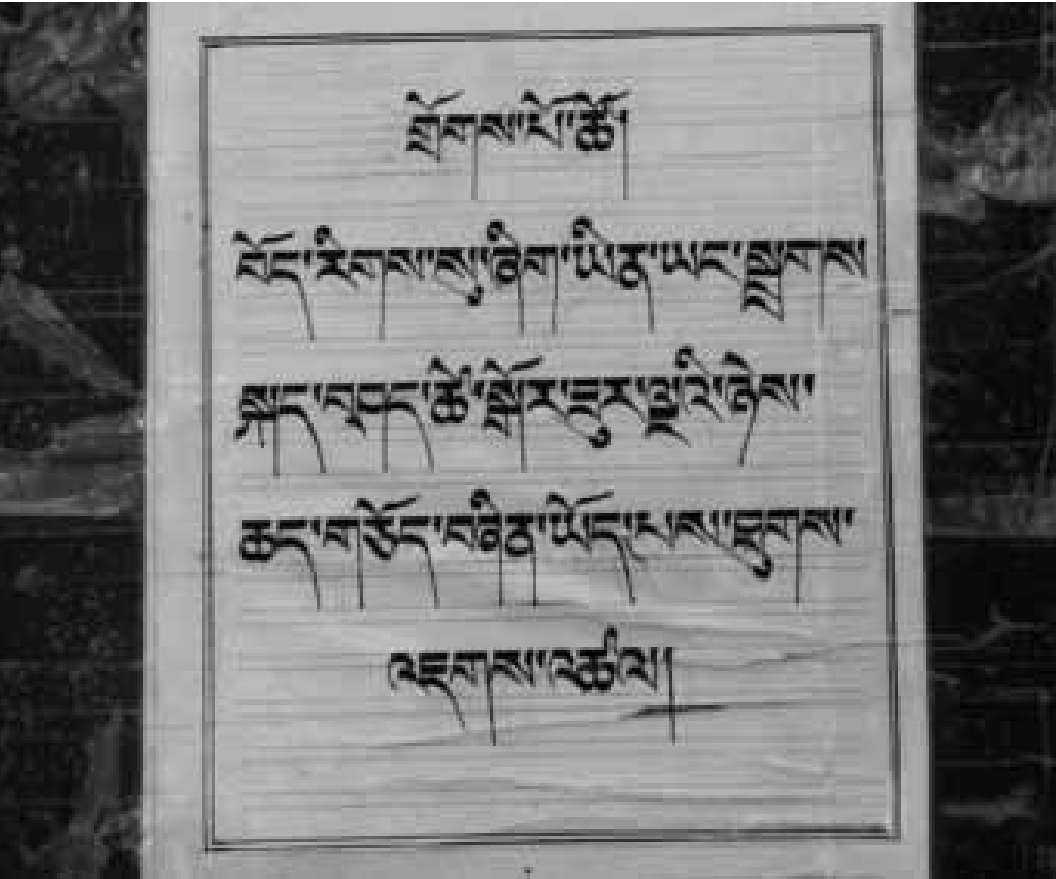 གྲོགས་པོ་ཚོ།
བོད་རིགས་སུ་ཞིག་ཡིན་ཡང་སྨྲགས
སྐད་བཤད་ཚེ་སྒོར་ལྔའི་ཉེས་
ཆད་གཅོད་བཞིན་ཡོད་པས་ཐུགས་
འཇགས་འཚལ།